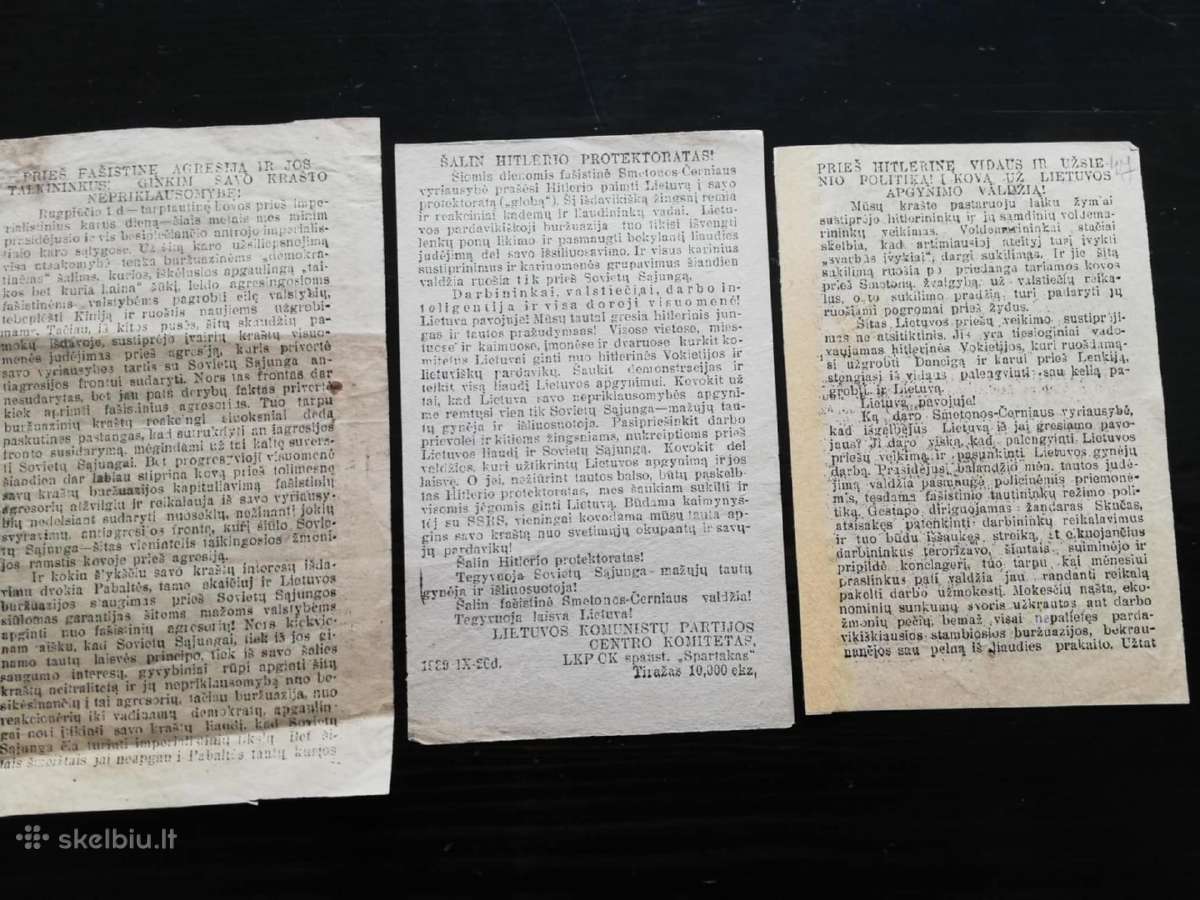 PRIEŠ FAŠISTINĘ AGRESIJĄ IR JOS
TALKININKUS! GINKIM SAVO KRAŠTO
NEPRIKLAUSOMYBĘ!
Rugpiučio 1 d—tarptautinę kovos prieš impe-
rialistinius karus dieną—šiais metais mes minim
prasidėjusio ir vis besiplečiančio antrojo imperialis-
tinio karo sąlygose. Už šitą karo užsiliepsnojimą
visa atsakomybė tenka buržuazinėms „demokra-
tinėms" šalims, kurios, iškėlusios apgaulingą „tai-
kos bet kuria kaina" šūkį, leido agresingosioms
fašistinėms valstybėms pagrobti eilę valstybių,
tebeplėšti Kiniją ir ruoštis naujiems užgrobi-
mams. Tačiau, iš kitos pusės, šitų skaudžių pa-
mokų išdavoje, sustiprėjo įvairių kraštų visuo-
menės judėjimas prieš agresiją, kuris privertė
savo vyriausybes tartis su Sovietų Sąjunga an-
tiagresijos frontui sudaryti. Nors tas frontas dar
nesudarytas, bet jau pats derybų faktas privertė
kiek aprimti fašistinius agresorius. Tuo tarpu
buržuazinių kraštų reakcingi sluoksniai deda
paskutines pastangas, kad sutrukdyti antiagresijos
fronto susidarymą, mėgindami už tai kaltę suvers-
ti Sovietų Sąjungai. Bet progresyvioji visuomenė
šiandien dar labiau stiprina kovą prieš tolimesnę
savų kraštų buržuazijos kapituliavimą fašistinių
agresorių atžvilgiu ir reikalauja iš savo vyriausy-
bių nedelsiant sudaryti nuoseklų, nežinantį jokių
svyravimų, antiagresijos frontą, kurį siūlo Sovie-
tų Sąjunga—šitas vienintelis taikingosios žmoni-
jos ramstis kovoje prieš agresiją.
Ir kokiu šlykščiu savo kraštų interesų išda-
vimu dvokia Pabaltės, tame skaičiuj ir Lietuvos
buržuazijos siaugimas prieš Sovietų Sąjungos
siūlomas garantijas šitoms mažoms valstybėms
apginti nuo fašistinių agresorių! Nors kiekvie-
nam aišku, kad Sovietų Sąjungai, tiek iš jos gi-
namo tautų laisvės principo, tiek iš savo šalies
saugumo interesų, gyvybiniai rūpi apginti šitų
kraštų neitralitetą ir jų nepriklausomybę nuo be-
sikėsinančių į tai agresorių, tačiau buržuazija, nuo
reakcionierių iki vadinamų demokratų, apgaulin-
gai nori įtikinti savo kraštų liaudį, kad Sovietų
Sąjunga čia turinti imperialistinių tikslų. Bet ši-
tais šmeižtais jai neapgauti Pabaltės tautų, kurios
ŠALIN HITLERIO PROTEKTORATAS!
Šiomis dienomis fašistinė Smetonos-Černiaus
vyriausybė prašėsi Hitlerio paimti Lietuvą į savo
protektoratą („globą"). Šį išdavikišką žingsnį remia
ir reakciniai kademų ir liaudininkų vadai. Lietu-
vos pardavikiškoji buržuazija tuo tikisi išvengti
lenkų ponų likimo ir pasmaugti bekylantį liaudies
judėjimą dėl savo išsiliuosavimo. Ir visus karinius
sustiprinimus ir kariuomenės grupavimus šiandien
valdžia ruošia tik prieš Sovietų Sąjungą.
Darbininkai, valstiečiai, darbo in-
teligentija ir visa doroji visuomenė!
Lietuva pavojuje! Mūsų tautai gresia hitlerinis jun-
gas ir tautos pražudymas! Visose vietose, mies-
tuose ir kaimuose, įmonėse ir dvaruose kurkit ko-
mitetus Lietuvai ginti nuo hitlerinės Vokietijos ir
lietuviškų pardavikų. Šaukit demonstracijas ir
telkit visą liaudį Lietuvos apgynimui. Kovokit už
tai, kad Lietuva savo nepriklausomybės apgyni-
me remtųsi vien tik Sovietų Sąjunga—mažųjų tau-
tų gynėja ir išliuosuotoja. Pasipriešinkit darbo
prievolei ir kitiems žingsniams, nukreiptiems prieš
Lietuvos liaudį ir Sovietų Sąjungą. Kovokit dėl
valdžios, kuri užtikrintų Lietuvos apgynimą ir jos
laisvę. O jei, nežiūrint tautos balso, būtų paskelb-
tas Hitlerio protektoratas, mes šaukiam sukilti ir
visomis jėgomis ginti Lietuvą. Būdama kaimynys-
tėj su SSRS, vieningai kovodama mūsų tauta ap-
gins savo kraštą nuo svetimųjų okupantų ir savų-
jų pardavikų!
Šalin Hitlerio protektoratas!
Tegyvuoja Sovietų Sąjunga—mažųjų tautų
gynėja ir išliuosuotoja!
Šalin fašistinė Smetonos-Černiaus valdžia!
Tegyvuoja laisva Lietuva!
LIETUVOS KOMUNISTŲ PARTIJOS
CENTRO KOMITETAS.
1939-IX-20d.
LKP CK spaust. „Spartakas"
Tiražas 10,000 ekz.
PRIEŠ HITLERINĘ VIDAUS IR UŽSIE-
NIO POLITIKĄ! Į KOVĄ UŽ LIETUVOS
APGYNIMO VALDŽIĄ!
Mūsų krašte pastaruoju laiku žymiai
sustiprėjo hitlerininkų ir jų samdinių voldema-
rininkų veikimas. Voldemarininkai stačiai
skelbia, kad artimiausioj ateityj turį įvykti
„svarbūs įvykiai", dargi sukilimas. Ir jie šitą
sukilimą ruošia po priedanga tariamos kovos
prieš Smetoną, žvalgybą, už valstiečių reika-
lus, o to sukilimo pradžią turį padaryti jų
ruošiami pogromai prieš žydus.
Šitas Lietuvos priešų veikimo sustiprėji-
mas ne atsitiktinis. Jis yra tiesioginiai vado-
vaujamas hitlerinės Vokietijos, kuri ruošdama-
si užgrobti Dancigą ir karui prieš Lenkiją,
stengiasi iš vidaus palengvinti sau kelią pa-
grobti ir Lietuvą.
Lietuva pavojuje!
Ką daro Smetonos-Černiaus vyriausybė,
kad išgelbėjus Lietuvą iš jai gresiamo pavo-
jaus? Ji daro viską, kad palengvinti Lietuvos
priešų veikimą ir pasunkinti Lietuvos gynėjų
darbą. Prasidėjusį balandžio mėn. tautos judė-
jimą valdžia pasmaugė policinėmis priemonė-
mis, tęsdama fašistinio tautininkų režimo poli-
tiką. Gestapo diriguojamas žandaras Skučas,
atsisakęs patenkinti darbininkų reikalavimus
ir tuo būdu iššaukęs streiką, streikuojančius
darbininkus terorizavo, šimtais suiminėjo ir
pripildė konclagerį, tuo tarpu kai mėnesiui
praslinkus pati valdžia jau randanti reikalą
pakelti darbo užmokestį. Mokesčių našta, eko-
nominių sunkumų svoris užkrautas ant darbo
žmonių pečių, bemaž visai nepalietęs parda-
vikiškiausios stambiosios buržuazijos, bekrau-
nančios sau pelną iš liaudies prakaito. Užtat
skelbiu.lt